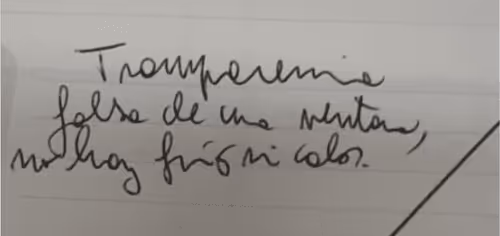 Transparencia
falsa de una ventana,
no hay frío ni calor.